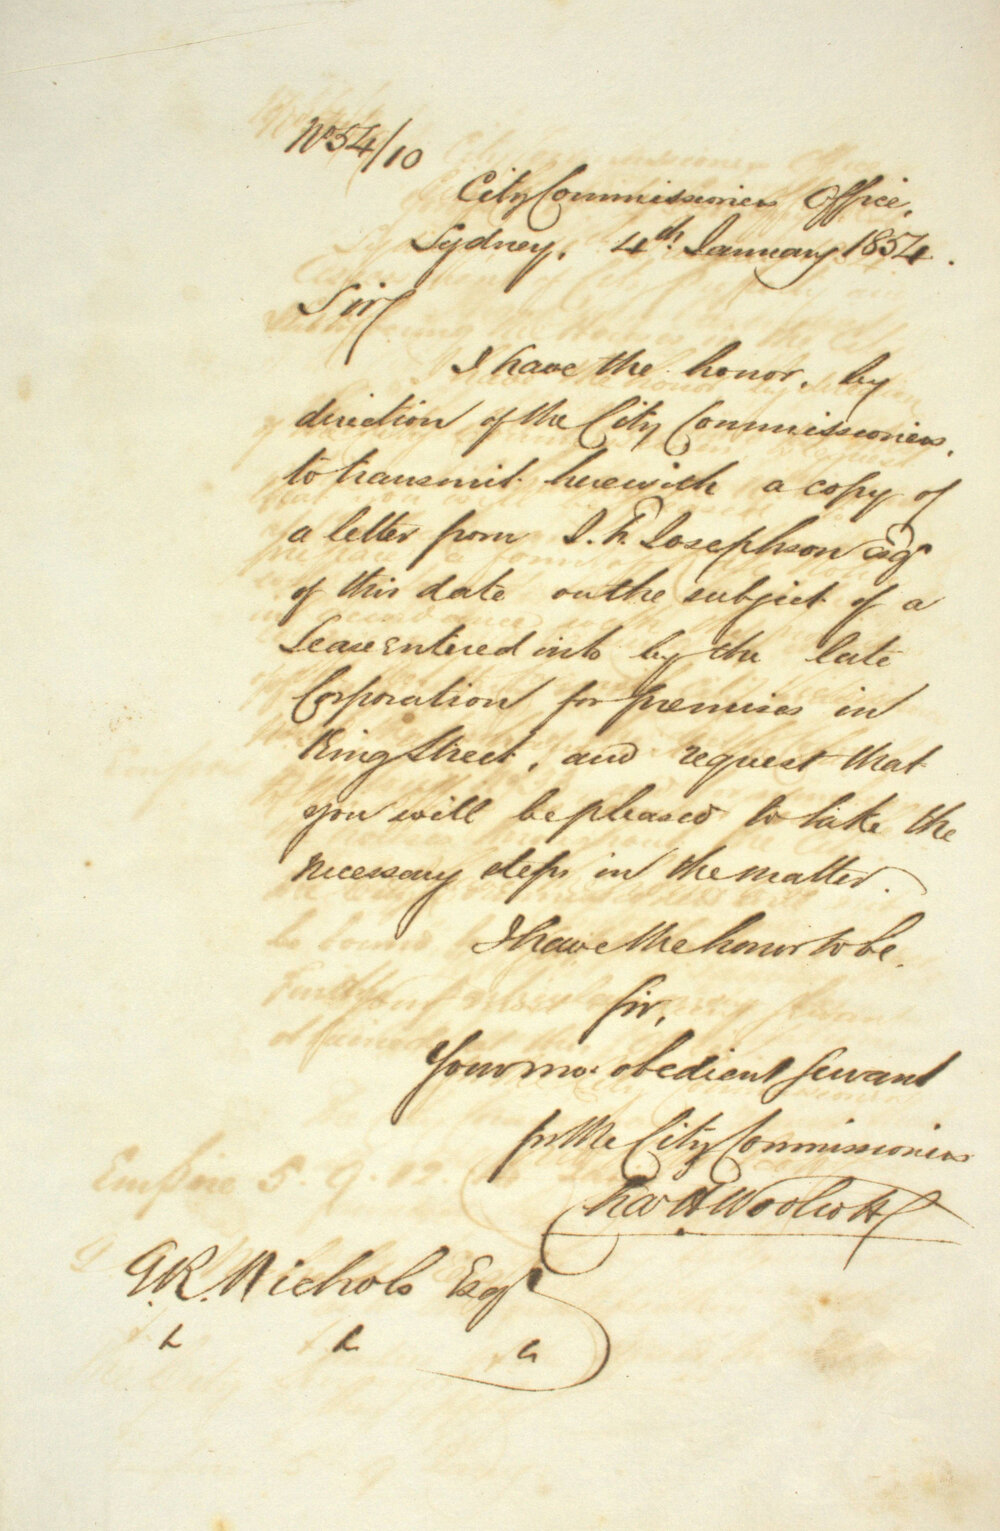 No 54/10
City Commissioners Office,
Sydney, 4th January 1854.
Sir
I have the honor, by
direction of the City Commissioners,
to transmit herewith a copy of
a letter from J. F. Josephson Esqr
of this date on the subject of a
Lease entered into by the late
Corporation for premises in
King Street, and request that
you will be pleased to take the
necessary steps in the matter.
I have the honor to be,
Sir,
Your mo. obedient Servant
for the City Commissioners
Chas H. Woolcott
G. R. Nichols Esqr